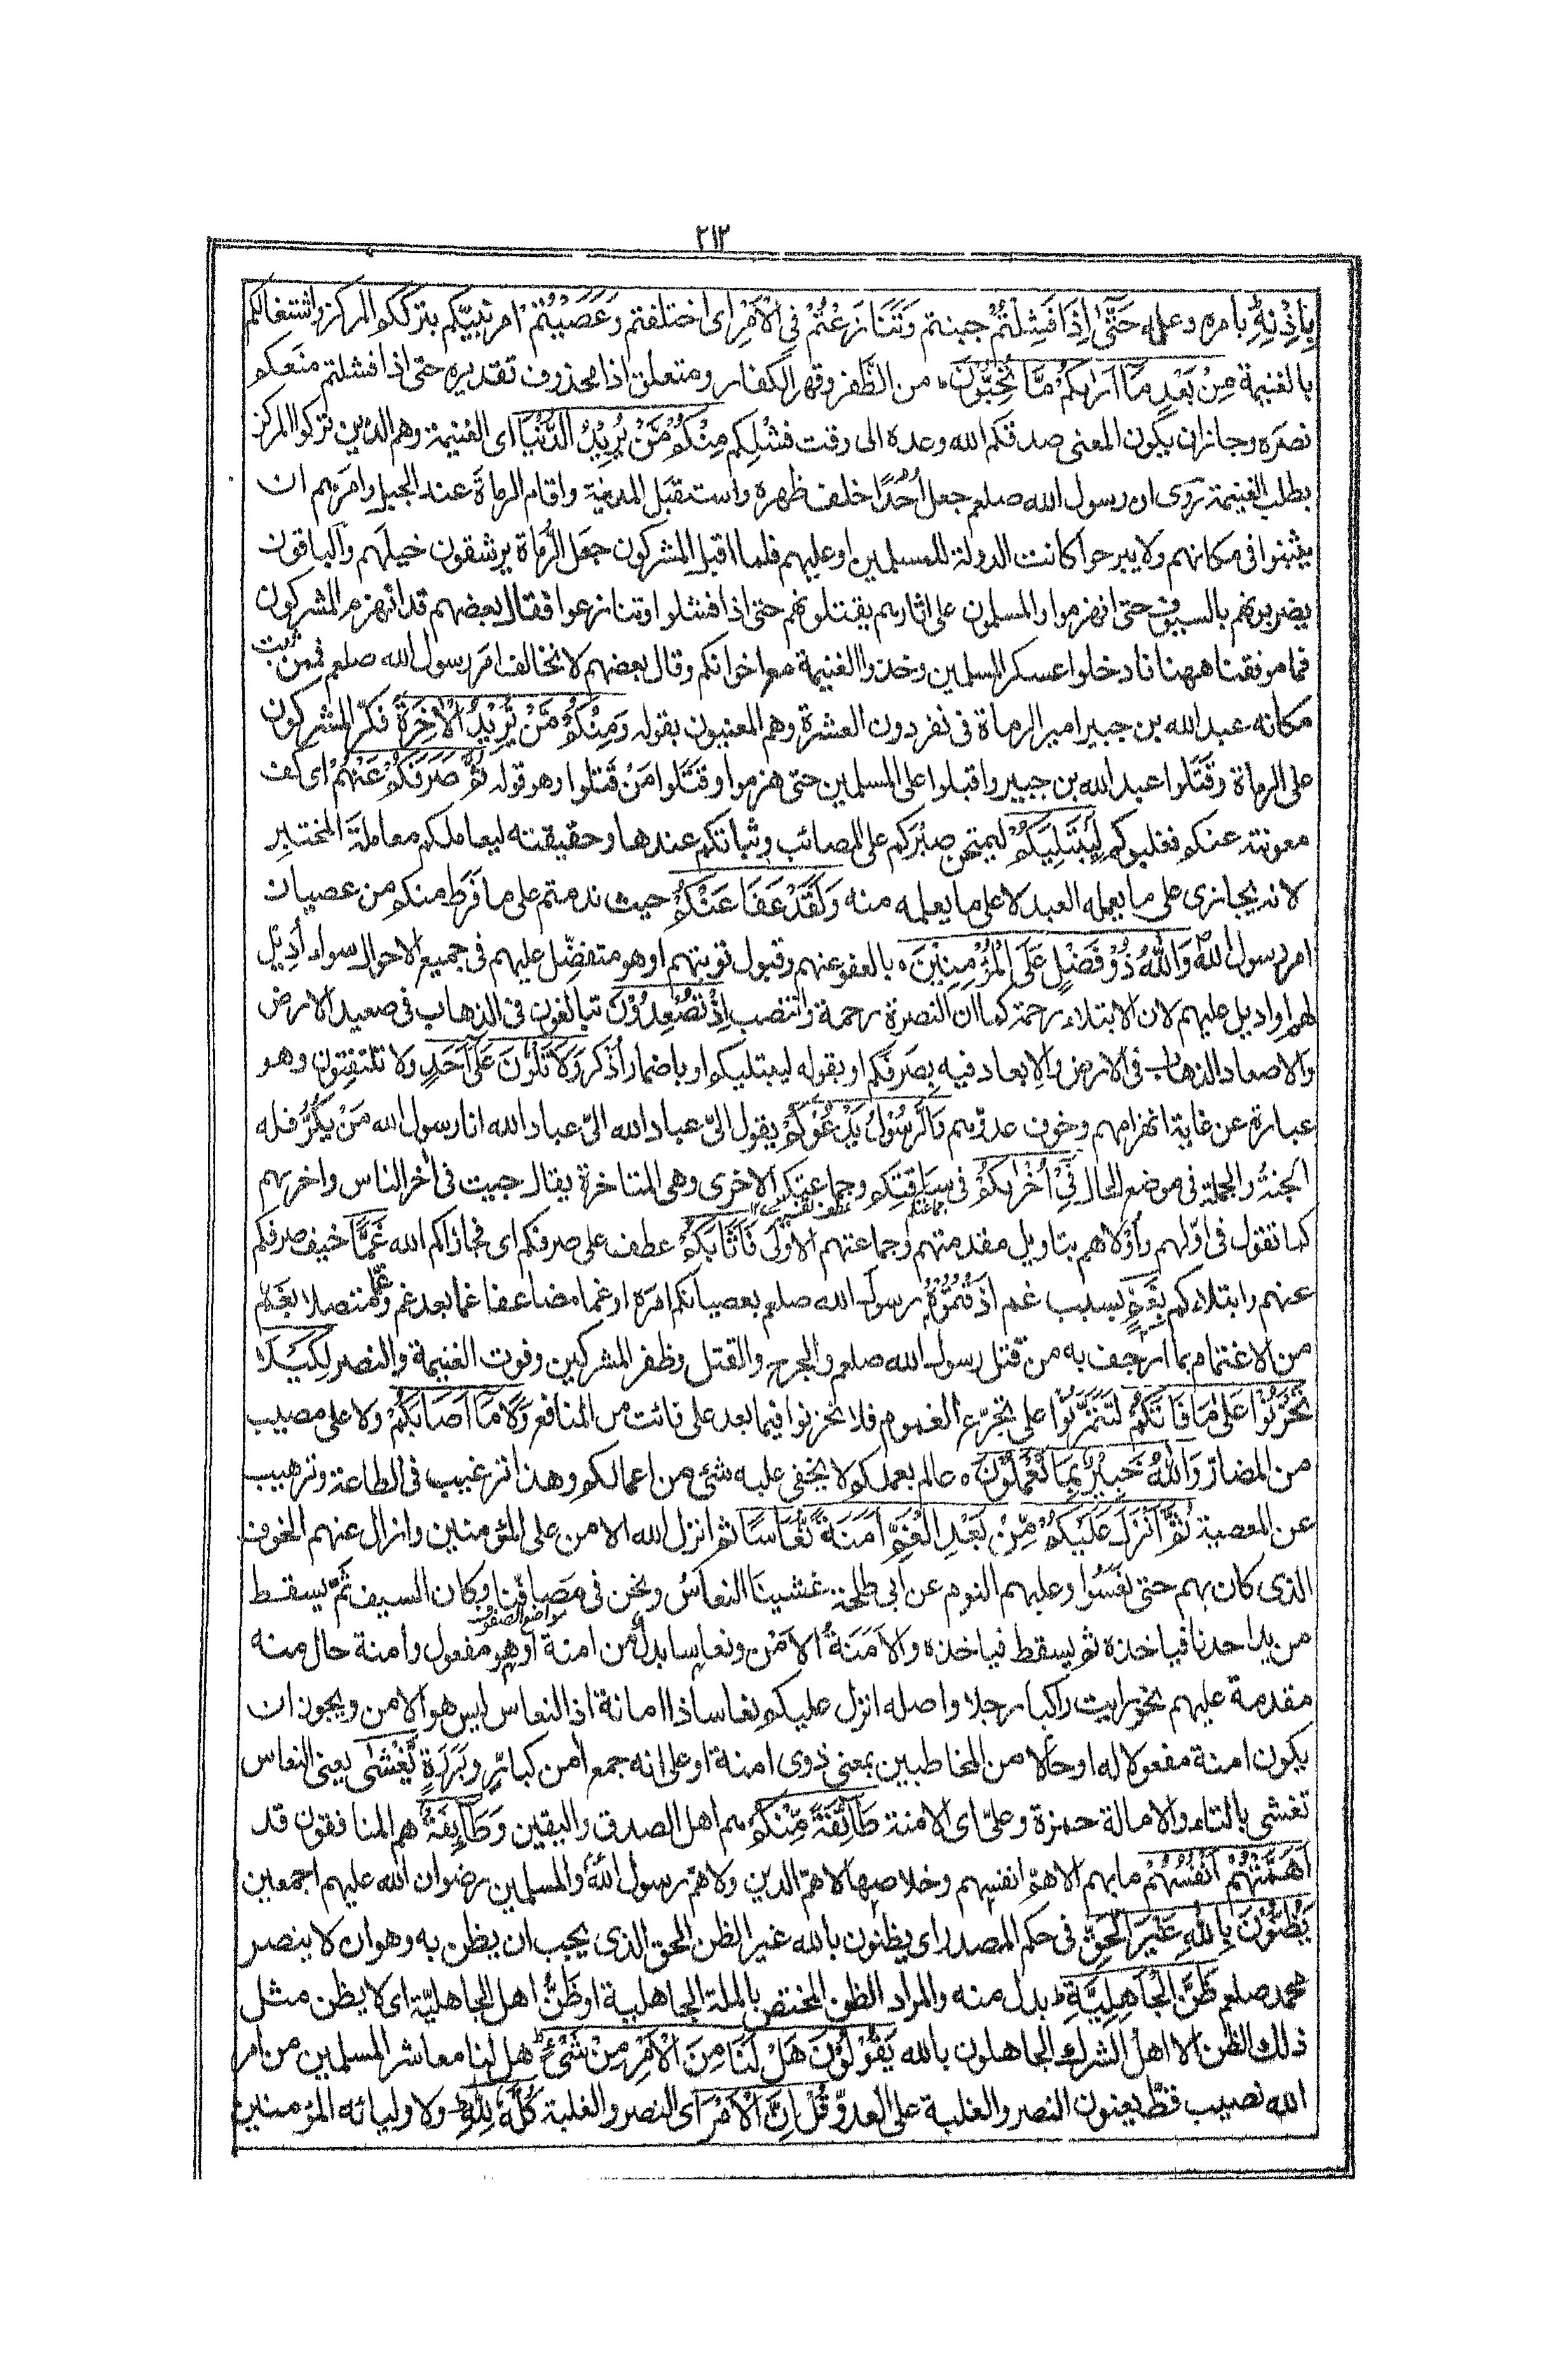 ٢١٢
بِاِذْنِهٖ بامره وعلمه حَتّٰى اِذَا فَشِلْتُمْ جبنتم وَتَنَازَعْتُمْ فِي الْاَمْرِ اى اختلفتم وَعَصَيْتُمْ امر نبيّكم بترككم المركز واشتغالكم
بالغنيمة مِنْ بَعْدِ مَآ اَرٰىكُمْ مَّا تُحِبُّوْنَ ه من الظَّفر وقهر الكفار ومتعلق اذا محذوف تقديره حتى اذا فشلتم منَعكم
نصَره وجاز ان يكون المعنى صدقكم الله وعده الى وقت فشْلِكم مِنْكُمْ مَّنْ يُرِيْدُ الدُّنْيَا اى الغنيمة وهم الذين تركوا المركز
بطلب الغنيمة رُوى ان رسول الله صلعم جعل اُحُدًا خلف ظهره واستقبل المدينة واقام الرماةَ عند الجبل وامَرهم ان
يثبتوا فى مكانهم ولا يبرحوا كانت الدولة للمسلمين او عليهم فلما اقبل المشركون جعَل الرُّماة يرشقون خيلهم والباقون
يضربونهم بالسيوف حتى انهزموا والمسلمون على اثارهم يقتلونهم حتى اذا فشلوا وتنازعوا فقال بعضهم قد انهزم المشركون
فما موقفنا ههنا فادخلوا عسكر المسلمين وخذوا الغنيمة مع اخوانكم وقال بعضهم لا نخالف امَر رسول الله صلعم فممن ثبت
مكانه عبد الله بن جبير امير الرماة فى نفر دون العشرة وهم المعنيون بقوله وَمِنْكُمْ مَّنْ يُّرِيْدُ الْاٰخِرَةَ فكرّ المشركون
على الرماة وقَتَلوا عبد الله بن جبير واقبلوا على المسلمين حتى هزموا وقَتَلوا مَنْ قَتلوا وهو قوله ثُمَّ صَرَفَكُمْ عَنْهُمْ اى كف
معونته عنكم فغلبوكم لِيَبْتَلِيَكُمْ ليمتحن صبْرَكم على المصائب وثباتكم عندها وحقيقته ليعاملكم معاملةَ المختبِر
لانه يجازى على ما يعمله العبد لا على ما يعلمه منه وَلَقَدْ عَفَا عَنْكُمْ حيث ندمتم على ما فَرَط منكم من عصيان
امر رسول الله وَاللّٰهُ ذُوْ فَضْلٍ عَلَى الْمُؤْمِنِيْنَ ه بالعفو عنهم وقبول توبتهم او هو متفضّل عليهم فى جميع الاحوال سواء اُدِيْل
لهم او اديل عليهم لان الابتلاء رحمة كما ان النصرة رحمة وانتصب اِذْ تُصْعِدُوْنَ تبالغون فى الذهاب فى صعيد الارض
والاصعاد الذهاب فى الارض والابعاد فيه بِصَرفكم او بقوله ليبتليكم او باضمار اُذكر وَلَا تَلْوٗنَ عَلٰٓى اَحَدٍ ولا تلتفتون وهو
عبارة عن غاية انهزامهم وخوف عدوّهم وَّالرَّسُوْلُ يَدْعُوْكُمْ يقول الىّ عباد الله الىّ عباد الله انا رسول الله مَنْ يَكُرُّ فله
الجنةُ والجملة فى موضع الحال فِيْٓ اُخْرٰىكُمْ فى ساقتكم وجماعتكم الاخرى وهى المتاخرة يقال جيت فى اٰخر الناس واخريهم
كما تقول فى اوّلهم واُولاهم بتاويل مقدمتهم وجماعتهم الاولى فَاَثَابَكُمْ عطف على صرفكم اى فجازاكم الله غَمًّا حين صرفكم
عنهم وابتلاءكم بِغَمٍّ بسبب غم اَذَقْتُمُوْهُ رسول الله صلعم بعصيانكم امَره او غما مضاعفا غما بعد غم وغمّا متصلا بغَمّ
من الاغتمام بما اُرجِف به من قتل رسول الله صلعم والجرح والقتل وظفر المشركين وفوت الغنيمة والنصر لِكَيْلَا
تَحْزَنُوْا عَلٰى مَا فَاتَكُمْ لتَتَمَرَّنُوْا على تجرّع الغموم فلا تحزنوا فيما بعد على فائت من المنافع وَلَا مَآ اَصَابَكُمْ ولا على مصيب
من المضارّ وَاللّٰهُ خَبِيْرٌۢ بِمَا تَعْمَلُوْنَ ه عالم بعملكم لا يخفى عليه شئ من اعمالكم وهذا ترغيب فى الطاعة وترهيب
عن المعصية ثُمَّ اَنْزَلَ عَلَيْكُمْ مِّنْۢ بَعْدِ الْغَمِّ اَمَنَةً نُّعَاسًا ثم انزل الله الامن على المؤمنين وازال عنهم الخوف
الذى كان بهم حتى نعَسُوا وغلبهم النوم عن ابى طلحة غشينَا النعاسُ ونحن فى مَصَافّنا وكان السيف ثَمّ يسقط
مواضع الصفوف
من يد احدنا فياخذه ثم يسقط فياخذه والاَمَنَةُ الاَمْن ونعاسا بدل من امنة او هو مفعول وامنة حال منه
مقدمة عليهم نحو رايت راكبا رجلا واصله انزل عليكم نعاسا ذا امانة اذ النعاس ليس هو الامن ويجوز ان
يكون امنة مفعولا له او حالا من المخاطبين بمعنى ذوى امنة او على انه جمع اٰمن كبارٍّ وبَرَرَةٍ يَّغْشٰى يعنى النعاس
تغشى بالتاء والامالة حمزة وعلىّ اى الامنة طَآئِفَةً مِّنْكُمْ هم اهل الصدق واليقين وَطَآئِفَةٌ هم المنافقون قد
اَهَمَّتْهُمْ اَنْفُسُهُمْ ما بهم الا همّ انفسهم وخلاصها لا همّ الدين ولا همّ رسول الله والمسلمين رضوان الله عليهم اجمعين
يَظُنُّوْنَ بِاللّٰهِ غَيْرَ الْحَقِّ فى حكم المصدر اى يظنون بالله غير الظن الحق الذى يجب ان يظن به وهو ان لا ينصر
محمد صلعم ظَنَّ الْجَاهِلِيَّةِ ط بدل منه والمراد الظن المختص بالملة الجاهلية او ظَنَّ اهل الجاهليّة اى لا يظن مثل
ذلك الظن الا اهل الشرك الجاهلون بالله يَقُوْلُوْنَ هَلْ لَّنَا مِنَ الْاَمْرِ مِنْ شَيْءٍ ط هل لنا معاشر المسلمين من امر
الله نصيب قطّ يعنون النصر والغلبة على العدوّ قُلْ اِنَّ الْاَمْرَ اى النصر والغلبة كُلَّهٗ لِلّٰهِ ط ولاوليائه المؤمنين